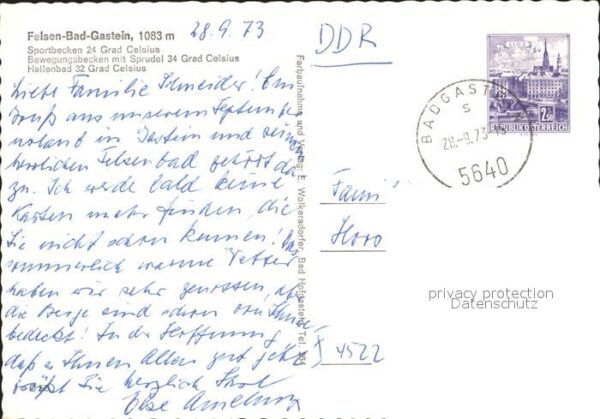 Felsen-Bad-Gastein, 1083 m
Sportbecken 24 Grad Celsius
Bewegungsbecken mit Sprudel 34 Grad Celsius
Hallenbad 32 Grad Celsius
28.9.73
DDR
Liebe Familie Schneider! Ein
Gruß aus unserem Septemberurlaub
in Gastein und dem
herrlichen Felsenbad gehört da-
zu. Ich werde bald keine
Karten mehr finden, die
Sie nicht schon kennen! Das
sommerlich warme Wetter
haben wir sehr genossen, aber
die Berge sind schon von Schnee
bedeckt! In der Hoffnung,
daß es Ihnen Allen gut geht
grüßt Sie herzlich Ihre
Else
Farbaufnahme und Verlag: E. Wolkersdorfer, Bad Hofgastein, Tel. 381
2,50
REPUBLIK ÖSTERREICH
BADGASTEIN
S
28.-9.73-
5640
Fami
Horo
X 4522
privacy protection
Datenschutz